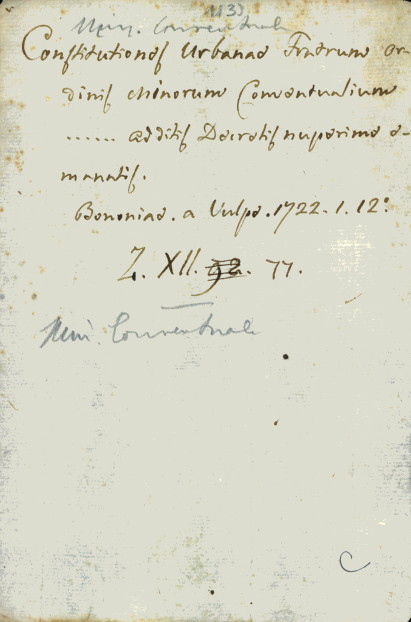 1133
Min. Conventuali
Constitutiones Urbanae Fratrum Or-
dinis Minorum Conventualium
...... additis Decretis nuperime e-
manatis.
Bononiae. a Vulpe. 1722. 1. 12º.
Z. XII. 92. 77.
Min. Conventuali
C